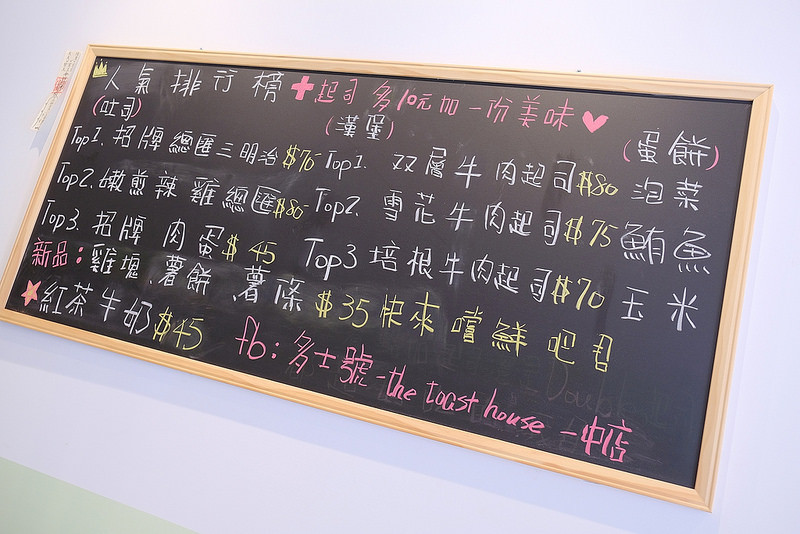 人氣排行榜 +起司多10元加一份美味
(吐司) (漢堡) (蛋餅)
Top1. 招牌總匯三明治$70 Top1. 双層牛肉起司$80 泡菜
Top2. 嫩煎辣雞總匯$80 Top2. 雪花牛肉起司$75 鮪魚
Top3. 招牌肉蛋$45 Top3 培根牛肉起司$70 玉米
新品:雞塊、薯餅、薯條$35快來嚐鮮吧
紅茶牛奶$45
fb:多士號-the toast house 一中店